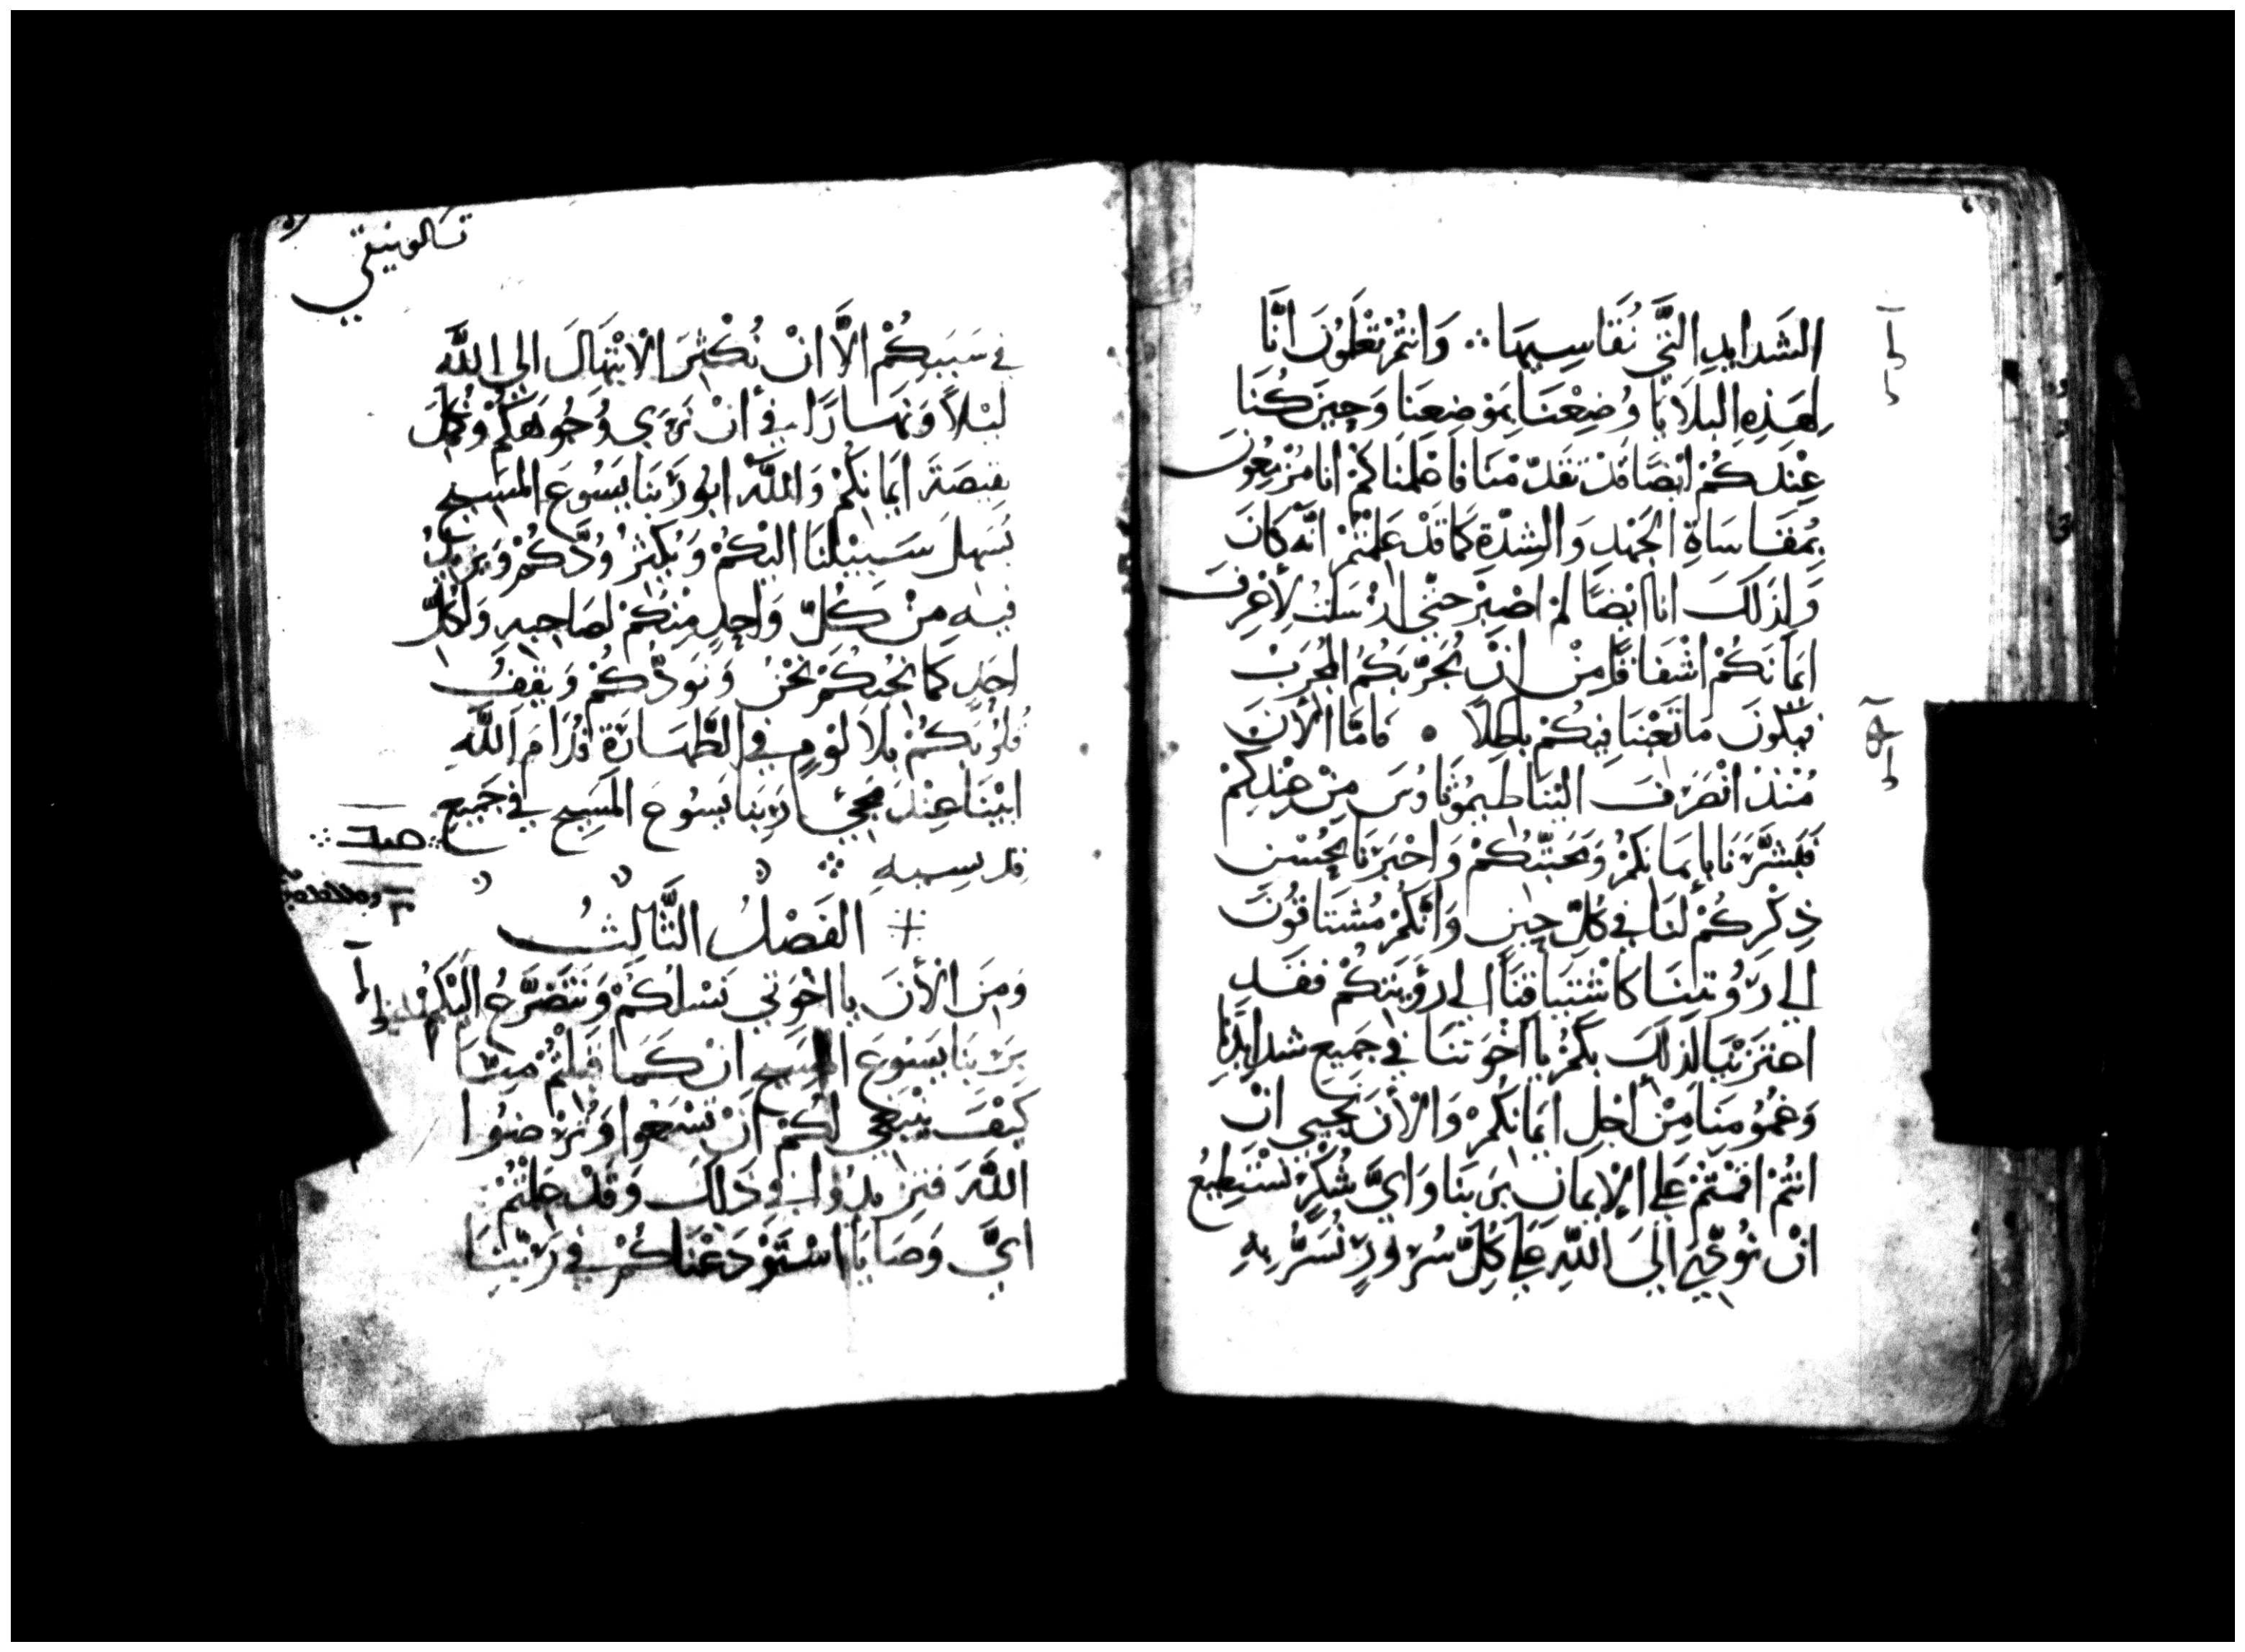 الشَدايدِ التَّي نُقَاسِيهَا ؞ وَانتُمْ تَعْلَمُونَ انَّا
لِهَذِهِ البَلَايَا وُضِعْنَا بِمَوْضِعِنَا وَحِينَ كُنَا
عِنْدَكُمْ ايْضًا قَدْ تَقَدّمْنَا فَاعْلَمْنَاكُمْ انا مُزْمِعُونَ
بِمُقَاسَاةِ الجَهْدِ وَالشِدّةِ كَمَا قَدْ عَلِمْتُمْ انَّه كَانَ
وَلِذَلكَ انَا ايْضًا لَمْ اصْبِرْ حتّي ارْسَلتُ لِأعْرِفَ
ايمَانَكُمْ اشْفَاقًا مِنْ انْ يُجَرّبَكُمُ المُجَرّبْ
فيَكُونَ مَا تَعَبْنَا فِيكُمْ بَاطِلاً • فَامّا الْأنَ
مُنْذُ انْصَرَفَ الَيْنَا طيمُوثَاوُسَ مِنْ عِنْدِكُمْ
فَبَشَّرَنَا بايمَانِكُمْ وَمَحَبّتكُمْ وَاخْبَرَنَا بحُسْن
ذِكْرِكُمْ لَنَا في كُلّ حِينٍ وَانَّكُمْ مُشتَاقُونَ
الي رُؤيتِنَا كَاشْتِيَاقِنَا الي رُؤيَتِكُمْ فَقَد
اعْتَزَيْنَا لذلكَ بكُمْ يا اخْوَتنَا في جَميعِ شدايدِنَا
وَغمُومِنَا مِنْ اجْلِ ايمَانِكُمْ وَالْأنَ نَحْيي انْ
انتُمْ اقمْتُمْ عَلي الإيمَان برَبّنَا وَايَّ شُكْرٍ نسْتَطِيعُ
انْ نُوَدّيَ الَي اللّهِ عَلي كُلّ سُرُورٍ نُسَرُّ بِهِ
تسالونيقي
في سَبَبِكُمْ الاَّ انْ نُكْثِرَ الْابْتِهَالَ الي اللَّه
لَيْلاً وَنهَارًا في أنْ نَرَي وُجُوهَكُمْ وَنُكَمّلَ
نقيصَةَ ايمَانكُمْ وَاللَّه ابُو رَبّنَا يَسُوعَ المَسيحِ
يُسَهل سَبيْلنَا اليْكُمْ وَيُكْثِرُ وُدَّكُمْ وَيَزيدُ
فيهِ مِنْ كُلّ وَاحِدٍ مِنكُمْ لصَاحِبهِ وَلِكُلّ
احَدٍ كَمَا نُحبُكُمْ نَحْنُ وَنَوَدّكُمْ وَيَقفُ
قُلُوبَكُمْ بِلاَ لَوْمٍ في الطَّهَارَةِ قُدَّامَ اللَّهِ
ابيْنَا عِنْدَ مَجئ رَبّنَا يَسُوعَ المَسِيح في جَميع
قدّيسيهِ
الفَصْلُ الثَّالِثُ
وَمنَ الْأنَ يا اخْوَتي نَسْلُكُمْ وَنَتَضَرّعُ اليْكُمْ
برَبّنَا يَسُوعَ المَسيحِ انْ كَمَا قَبلْتُمْ مِنّا
كَيْفَ يَنْبَغي لَكُمْ أنْ تَسْعَوا وَتُرْضُوا
اللَّهَ فتزيدُوا في ذلكَ وَقَدْ عَلمْتُمْ
ايَّ وَصَايَا اسْتَوْدَعْنَاكُمْ في رَبّنَا